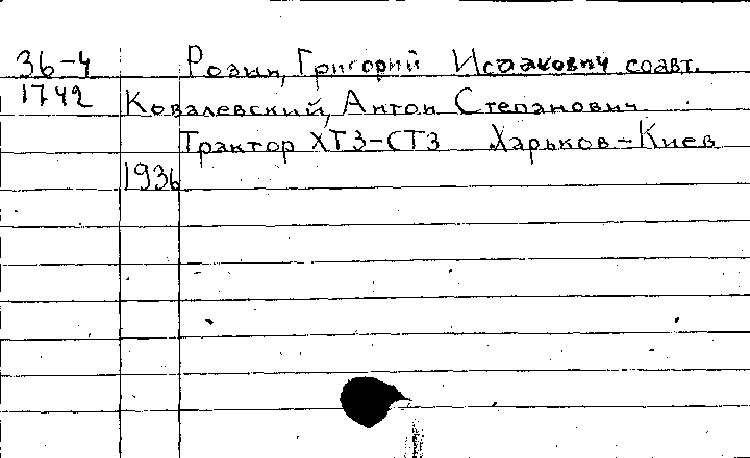 36-4 Розин, Григорий Исаакович соавт.
1742 Ковалевский, Антон Степанович
Трактор ХТЗ-СТЗ Харьков-Киев
1936